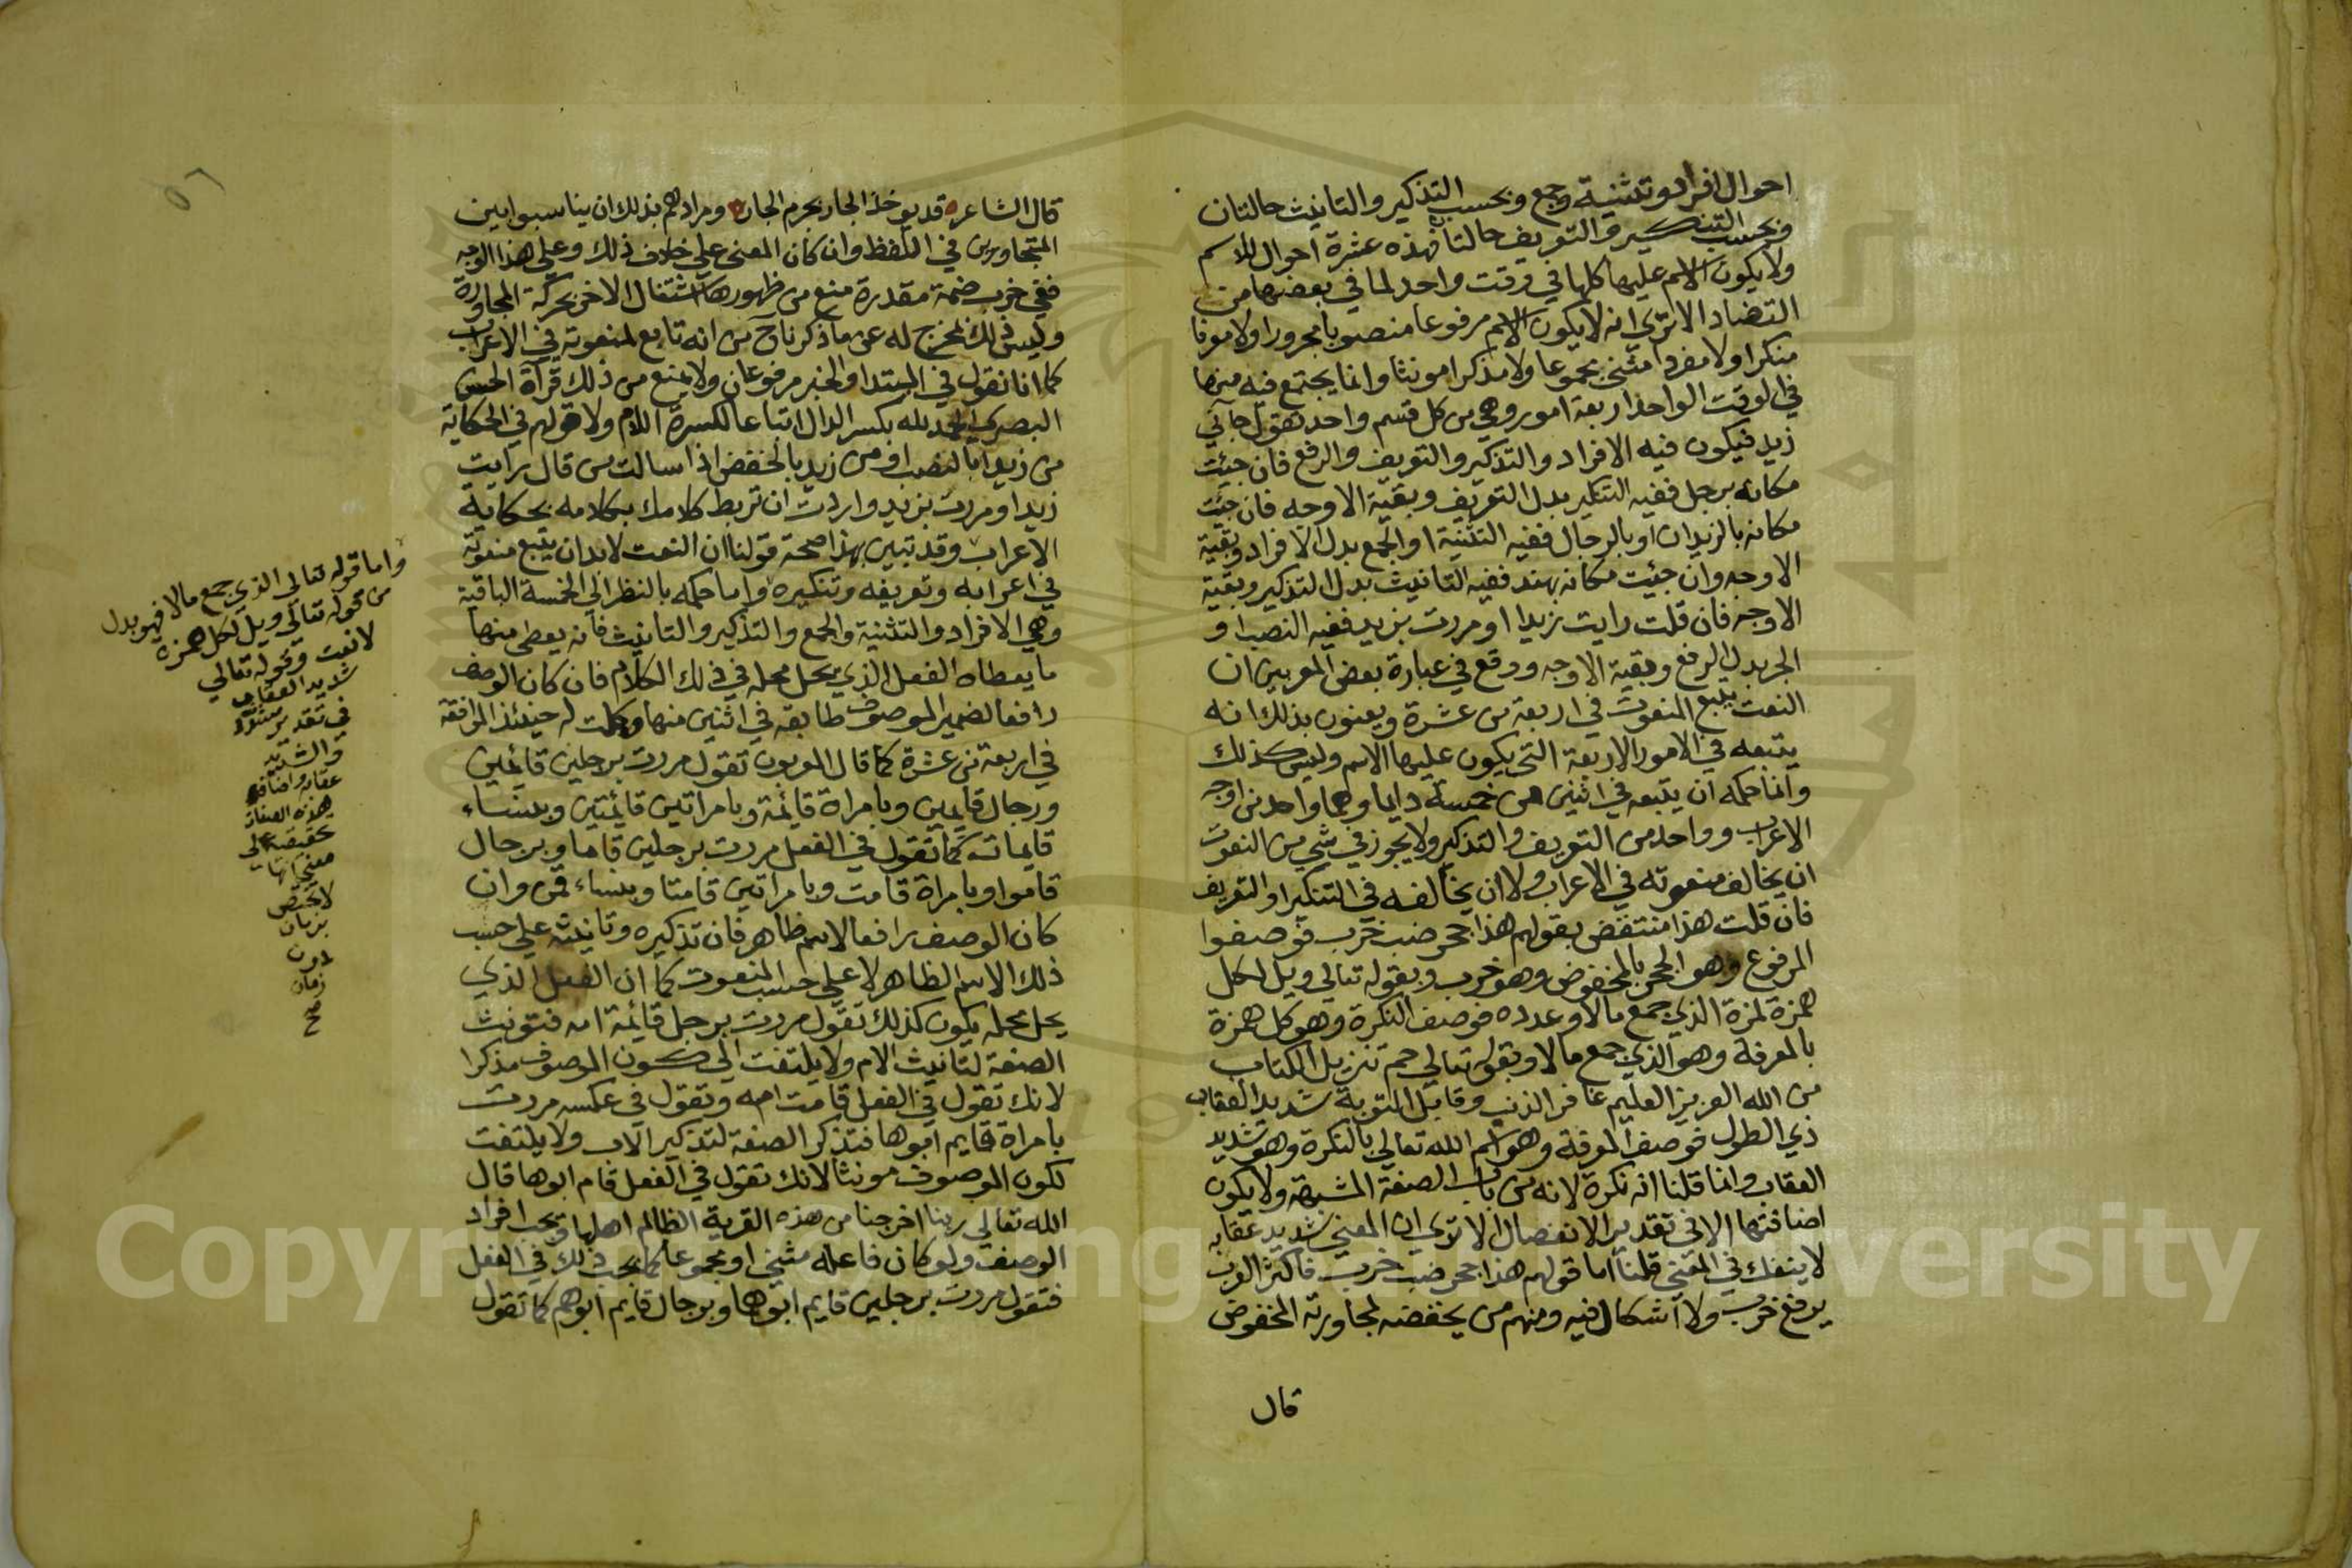 احوال افراد وتثنية وجمع وبحسب التذكير والتانيث حالتان
وبحسب التنكير والتعريف حالتان فهذه عشرة احوال للاسم
ولا يكون الاسم عليها كلها في وقت واحد لما في بعضها من
التضاد الا ترى انه لا يكون الاسم مرفوعا منصوبا مجرورا ولا معرفا
منكرا ولا مفردا مثنى مجموعا ولا مذكرا مونثا وانما يجتمع فيه منها
في الوقت الواحد اربعة امور وهي من كل قسم واحد تقول جآني
زيد فيكون فيه الافراد والتذكير والتعريف والرفع فان جيئت
مكانه برجل ففيه التنكير بدل التعريف وبقية الاوجه فان جيئت
مكانه بالزيدان او بالرجال ففيه التثنية او الجمع بدل الافراد وبقية
الاوجه وان جئيت مكانه بهند ففيه التانيث بدل التذكير وبقية
الاوجه فان قلت رايت زيدا او مررت بزيد ففيه النصب او
الجر بدل الرفع وبقية الاوجه ووقع في عبارة بعض المعربين ان
النعت يتبع المنعوت في اربعة من عشرة ويعنون بذلك انه
يتبعه في الامور الاربعة التي يكون عليها الاسم وليس كذلك
وانما حكمه ان يتبعه في اثنين من خمسة دايما وهما واحد من اوجه
الاعراب وواحد من التعريف والتذكير ولا يجوز في شي من النعوت
ان يخالف منعوته في الاعراب ولا ان يخالفه في التنكير او التعريف
فان قلت هذا منتقض بقولهم هذا جحر ضب خرب فوصفوا
المرفوع وهو الجحر بالمخفوض وهو خرب وبقوله تعالى ويل لكل
همزة لمزة الذي جمع مالا وعدده فوصف النكرة وهو كل همزة
بالمعرفة وهو الذي جمع مالا وبقوله تعالى حم تنزيل الكتاب
من الله العزيز العليم غافر الذنب وقابل التوبة شديد العقاب
ذي الطول فوصف المعرفة وهو اسم الله تعالى بالنكرة وهو شديد
العقاب وانما قلنا انه نكرة لانه من باب الصفة المشبهة ولا يكون
اضافتها الا في تقدير الانفصال الا ترى ان المعنى شديد عقابه
لا ينفك في المعنى قلنا اما قولهم هذا جحر ضب خرب فاكثر العرب
يرفع خرب ولا اشكال فيه ومنهم من يخفضه لمجاورته المخفوض
قال
قال الشاعر قد يوخذ الجار بجرم الجار ومرادهم بذلك ان يناسبوا بين
المتجاورين في اللفظ وان كان المعنى على خلاف ذلك وعلى هذا الوجه
ففي خرب ضمة مقدرة منع من ظهورها اشتغال الاخر بحركة المجاورة
وليس ذلك بمخرج له عن ما ذكرناه من انه تابع لمنعوته في الاعراب
كما انا نقول في المبتدا والخبر مرفوعان ولا يمنع من ذلك قرآة الحسن
البصري الحمد لله بكسر الدال اتباعا لكسرة اللام ولا قولهم في الحكاية
من زيدا بالنصب او من زيد بالخفض اذا سالت من قال رايت
زيدا او مررت بزيد واردت ان تربط كلامك بكلامه بحكاية
الاعراب وقد تبين بهذا صحة قولنا ان النعت لابد ان يتبع منعوته
في اعرابه وتعريفه وتنكيره واما حكمه بالنظر الى الخمسة الباقية
وهي الافراد والتثنية والجمع والتذكير والتانيث فانه يعطى منها
ما يعطاه الفعل الذي يحل محله في ذلك الكلام فان كان الوصف
رافعا لضمير الموصوف طابقه في اثنين منها وكملت له حينئذ الموافقة
في اربعة من عشرة كما قال المعربون تقول مررت برجلين قائمين
ورجال قايمين وبامراة قائمة وبامراتين قائمتين وبنساء
قايمات كما تقول في الفعل مررت برجلين قاما وبرجال
قاموا وبامراة قامت وبامراتين قامتا وبنساء قمن وان
كان الوصف رافعا لاسم ظاهر فان تذكيره وتانيثه على حسب
ذلك الاسم الظاهر لا على حسب المنعوت كما ان الفعل الذي
يحل محله يكون كذلك تقول مررت برجل قائمة امه فتونث
الصفة لتانيث الام ولا يلتفت الى كون الموصوف مذكرا
لانك تقول في الفعل قامت امه وتقول في عكسه مررت
بامراة قايم ابوها فتذكر الصفة لتذكير الاب ولا يلتفت
لكون الموصوف مونثا لانك تقول في الفعل قام ابوها قال
الله تعالى ربنا اخرجنا من هذه القرية الظالم اهلها ويجب افراد
الوصف ولو كان فاعله مثنى او مجموعا كما يجب ذلك في الفعل
فتقول مررت برجلين قايم ابوهما وبرجال قايم ابوهم كما تقول
واما قوله تعالى الذي جمع مالا فهو بدل
من قوله تعالى ويل لكل همزة
لا نعت وقوله تعالى
شديد العقاب
في تقدير
والشديد
عقابه واضافة
هذه الصفات
حقيقة على
معنى انها
لا تختص
بزمان
دون
زمان
صح
Copyright © King Saud University